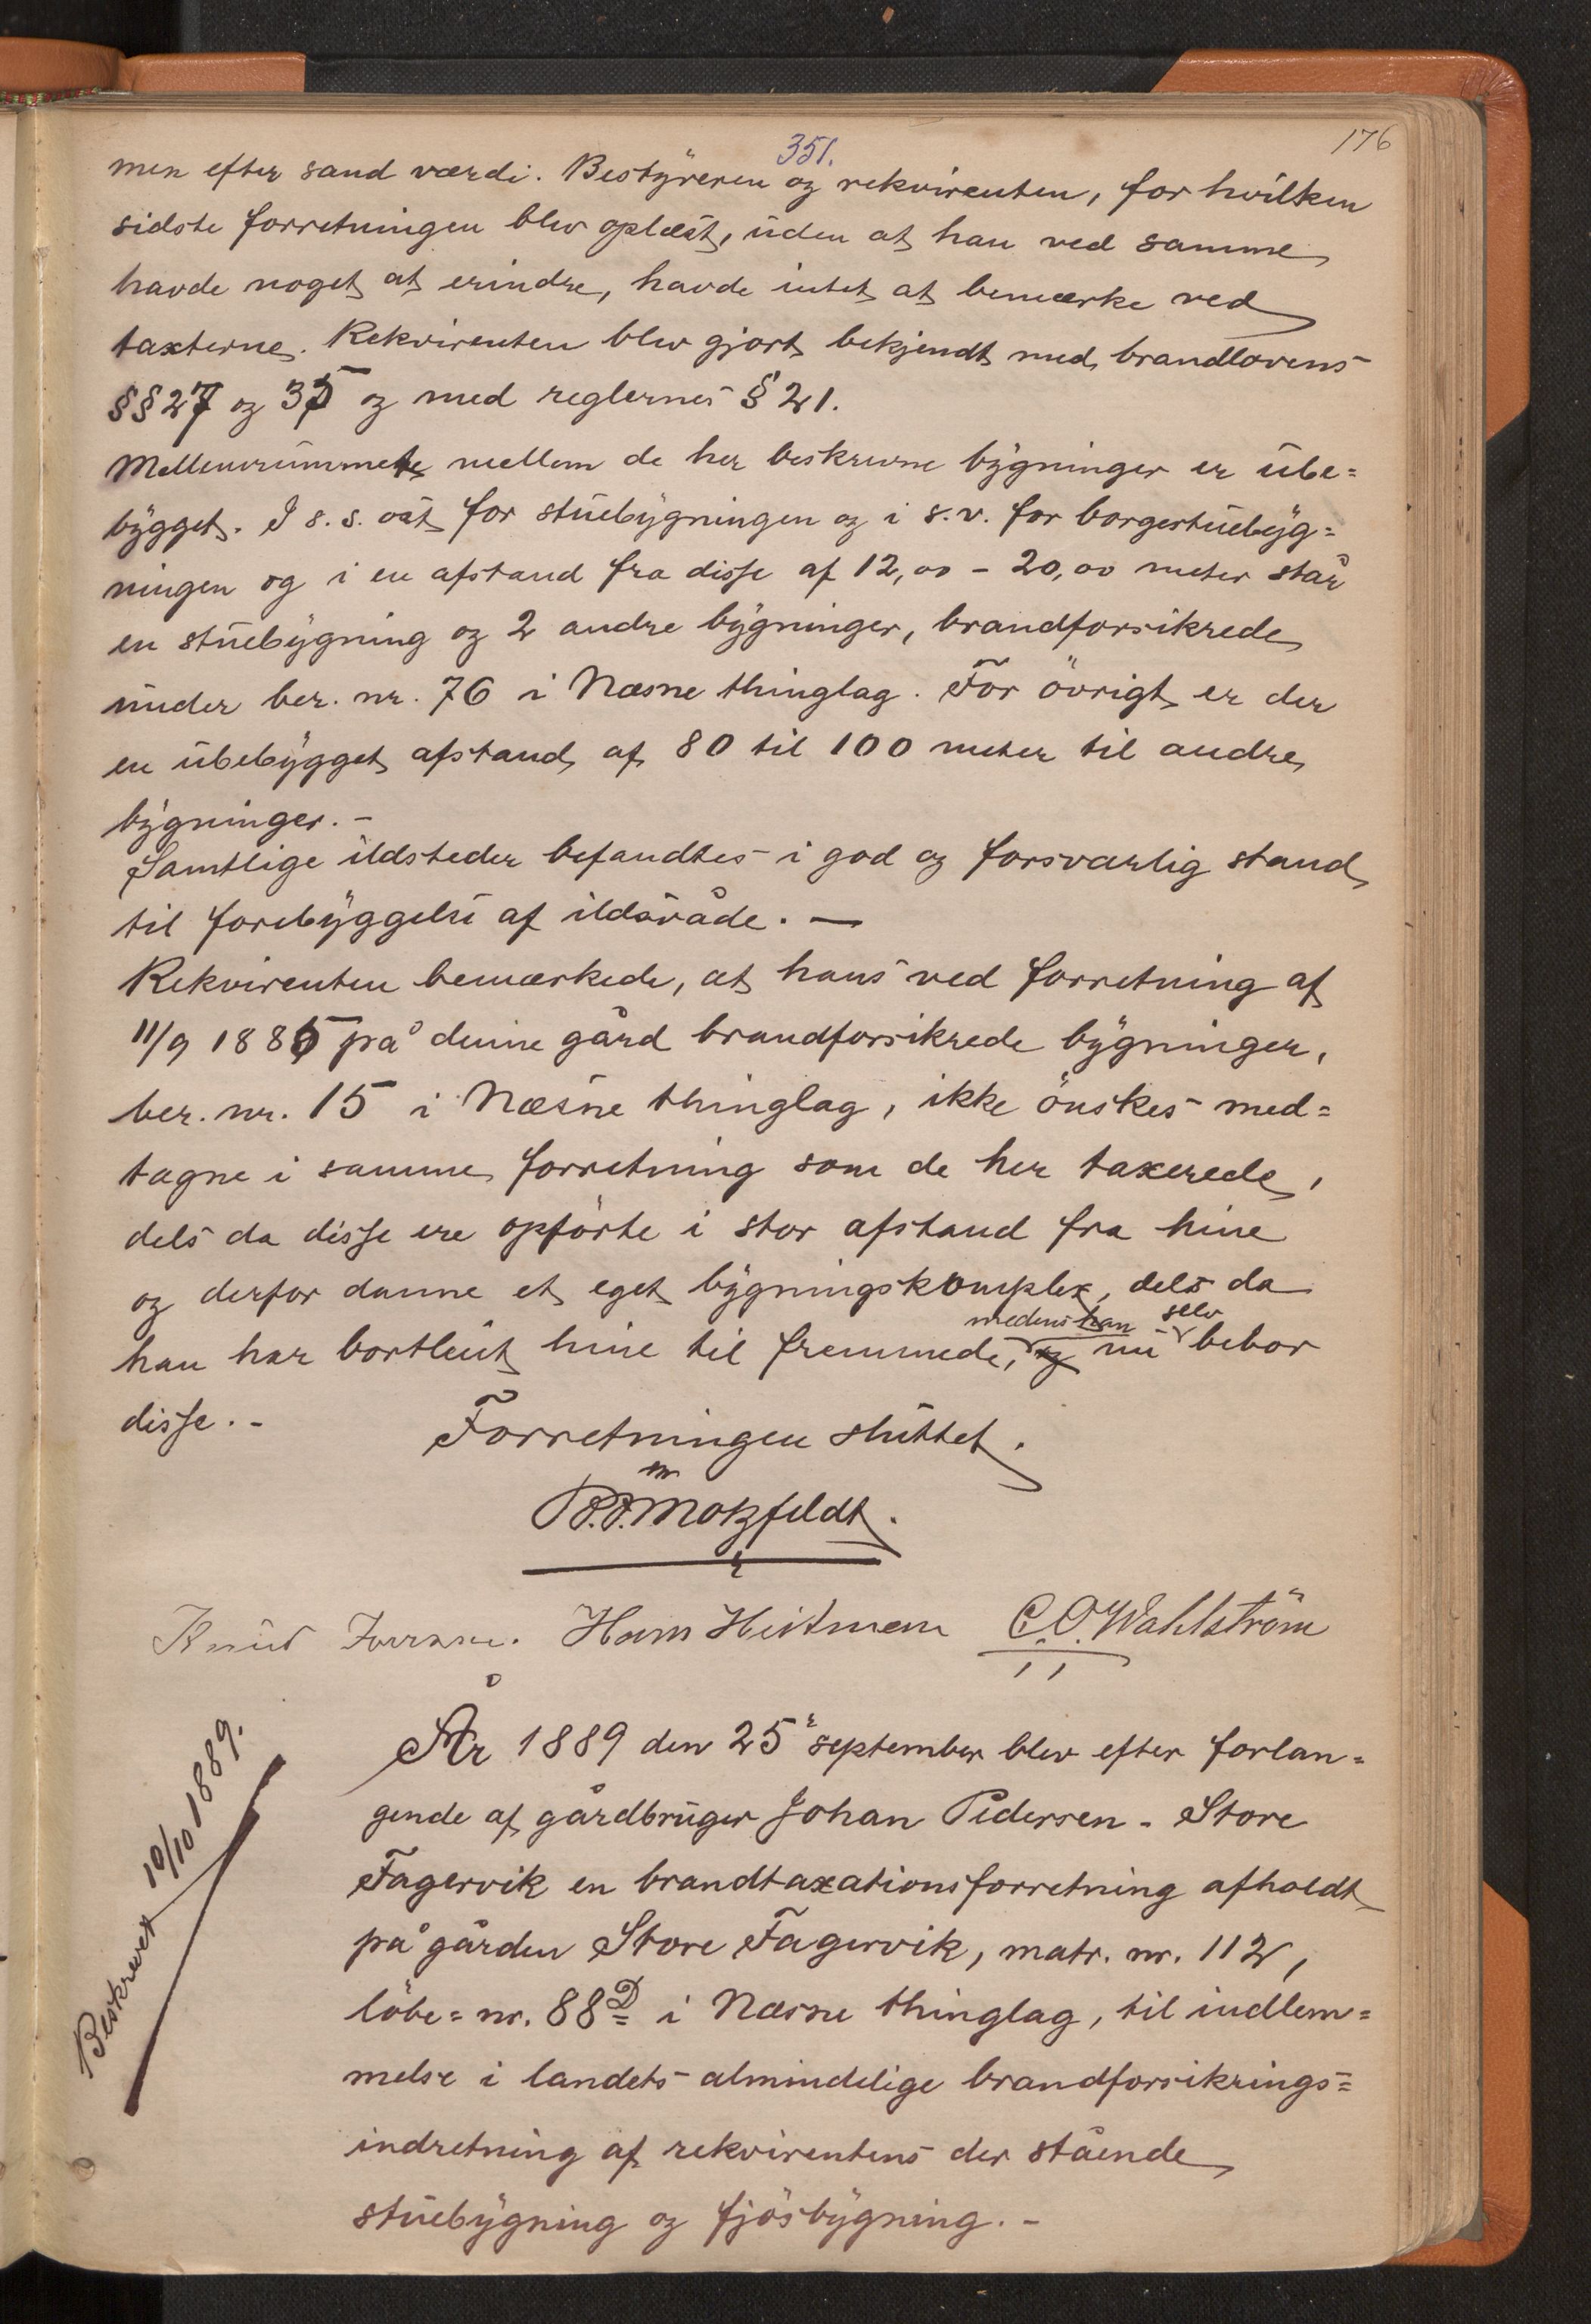 351.
176
men efter sand værdi. Bestyreren og rekvirenten, for hvilken
sidste forretningen blev oplæst, uden at han ved samme
havde noget at erindre, havde intet at bemærke ved
taxterne. Rekvirenten blev gjort bekjendt med brandlovens
§§ 27 og 35 og med reglernes § 21.
Mellemrummet mellem de her beskrevne bygninger er ube=
bygget. I s.s. øst for stuebygningen og i s.v. for borgestuebyg=
ningen og i en afstand fra disse af 12,00 - 20,00 meter står
en stuebygning og 2 andre bygninger, brandforsikrede
under ber. nr. 76 i Næsne thinglag. For övrigt er der
en ubebygget afstand af 80 til 100 meter til andre
bygninger. -
Samtlige ildsteder befandtes i god og forsvarlig stand
til forebyggelse af ildsvåde. -
Rekvirenten bemærkede, at hans ved forretning af
11/9 1885 på denne gård brandforsikrede bygninger,
ber. nr. 15 i Næsne thinglag, ikke önskes med=
tagne i samme forretning som de her taxerede,
dels da disse ere opförte i stor afstand fra hine
og derfor danne et eget bygningskomplex, dels da
medens han selv
han har bortleiet hine til fremmede, og nu bebor
disse. -
Forretningen sluttet.
P.F. Motzfeldt.
Knud Hans Heitman C.O. Wahlström
Beskrevet 10/10 1889.
År 1889 den 25 september blev efter forlan=
gende af gårdbruger Johan Pedersen - Store
Fagervik en brandtaxationsforretning afholdt
på gården Store Fagervik, matr. nr. 112,
löbe=nr. 88D i Næsne thinglag, til indlem=
melse i landets almindelige brandforsikrings=
indretning af rekvirentens der stående
stuebygning og fjösbygning. -